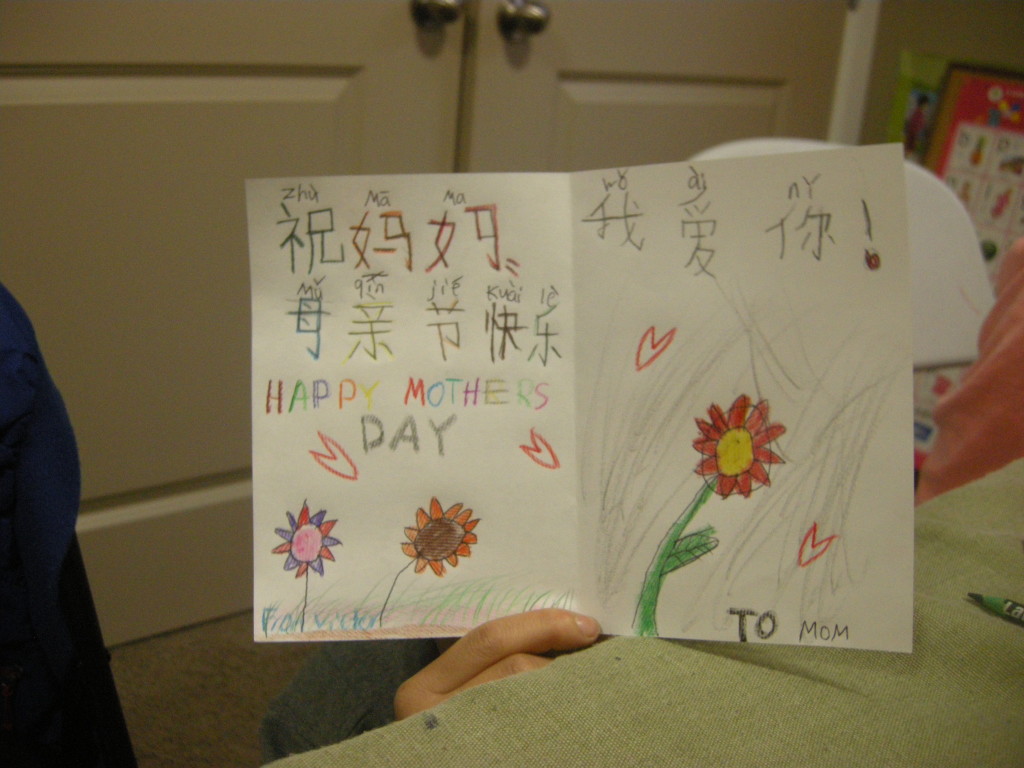 zhù mā ma
祝妈妈
mǔ qīn jiě kuài lè
母亲节快乐
HAPPY MOTHERS
DAY
From Victor
wǒ ài nǐ
我爱你!
TO MOM